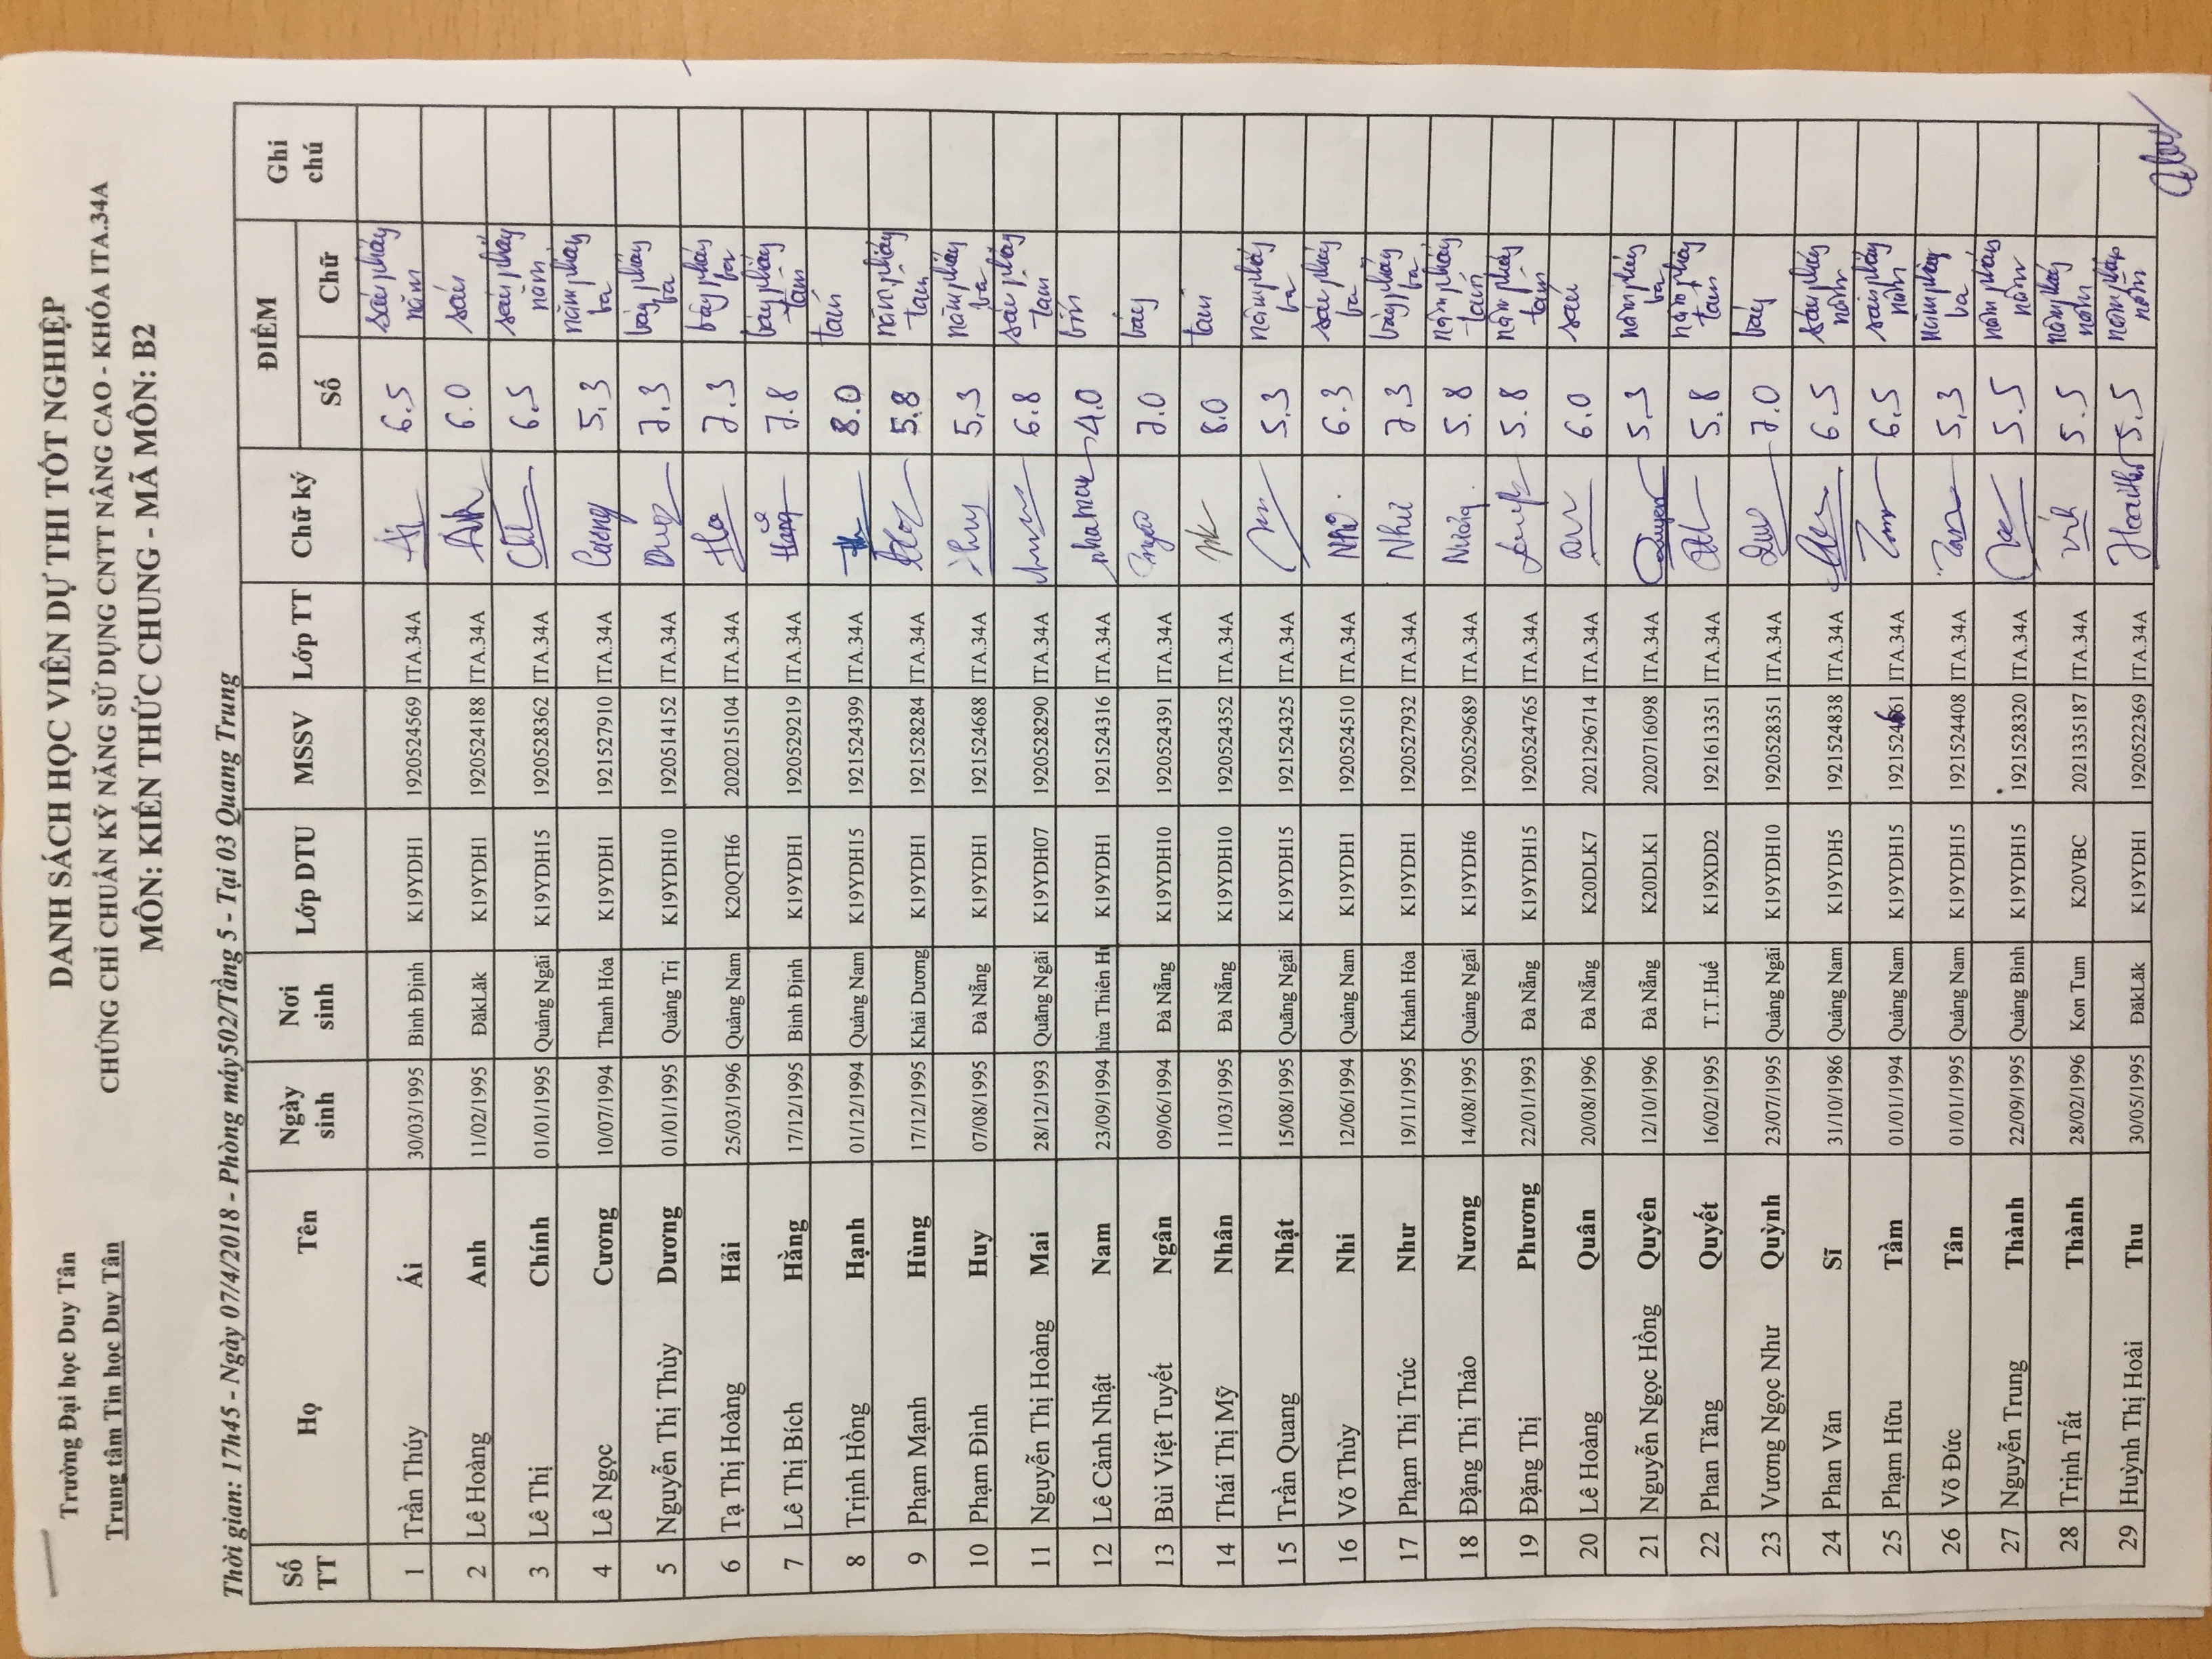 Trường Đại học Duy Tân
Trung tâm Tin học Duy Tân
DANH SÁCH HỌC VIÊN DỰ THI TỐT NGHIỆP
CHỨNG CHỈ CHUẨN KỸ NĂNG SỬ DỤNG CNTT NÂNG CAO - KHÓA ITA.34A
MÔN: KIẾN THỨC CHUNG - MÃ MÔN: B2
Thời gian: 17h45 - Ngày 07/4/2018 - Phòng máy502/Tầng 5 - Tại 03 Quang Trung
Số TT Họ Tên Ngày sinh Nơi sinh Lớp DTU MSSV Lớp TT Chữ ký ĐIỂM Ghi chú
Số Chữ
1 Trần Thúy Ái 30/03/1995 Bình Định K19YDH1 1920524569 ITA.34A Ái 6.5 sáu phẩy năm
2 Lê Hoàng Anh 11/02/1995 ĐăkLăk K19YDH1 1920524188 ITA.34A Anh 6.0 sáu
3 Lê Thị Chính 01/01/1995 Quảng Ngãi K19YDH15 1920528362 ITA.34A 6.5 sáu phẩy năm
4 Lê Ngọc Cương 10/07/1994 Thanh Hóa K19YDH1 1921527910 ITA.34A Cương 5.3 năm phẩy ba
5 Nguyễn Thị Thùy Dương 01/01/1995 Quảng Trị K19YDH10 1920514152 ITA.34A 7.3 bảy phẩy ba
6 Tạ Thị Hoàng Hải 25/03/1996 Quảng Nam K20QTH6 2020215104 ITA.34A 7.3 bảy phẩy ba
7 Lê Thị Bích Hằng 17/12/1995 Bình Định K19YDH1 1920529219 ITA.34A Hằng 7.8 bảy phẩy tám
8 Trịnh Hồng Hạnh 01/12/1994 Quảng Nam K19YDH15 1921524399 ITA.34A 8.0 tám
9 Phạm Mạnh Hùng 17/12/1995 Khải Dương K19YDH1 1921528284 ITA.34A 5.8 năm phẩy tám
10 Phạm Đình Huy 07/08/1995 Đà Nẵng K19YDH1 1921524688 ITA.34A Huy 5.3 năm phẩy ba
11 Nguyễn Thị Hoàng Mai 28/12/1993 Quãng Ngãi K19YDH07 1920528290 ITA.34A 6.8 sáu phẩy tám
12 Lê Cảnh Nhật Nam 23/09/1994 hừa Thiên Hu K19YDH1 1921524316 ITA.34A nhatnam 4.0 bốn
13 Bùi Việt Tuyết Ngân 09/06/1994 Đà Nẵng K19YDH10 1920524391 ITA.34A 7.0 bảy
14 Thái Thị Mỹ Nhân 11/03/1995 Đà Nẵng K19YDH10 1920524352 ITA.34A 8.0 tám
15 Trần Quang Nhật 15/08/1995 Quãng Ngãi K19YDH15 1921524325 ITA.34A 5.3 năm phẩy ba
16 Võ Thùy Nhi 12/06/1994 Quảng Nam K19YDH1 1920524510 ITA.34A Nhi 6.3 sáu phẩy ba
17 Phạm Thị Trúc Như 19/11/1995 Khánh Hòa K19YDH1 1920527932 ITA.34A Như 7.3 bảy phẩy ba
18 Đặng Thị Thảo Nương 14/08/1995 Quảng Ngãi K19YDH6 1920529689 ITA.34A Nương 5.8 năm phẩy tám
19 Đặng Thị Phương 22/01/1993 Đà Nẵng K19YDH15 1920524765 ITA.34A 5.8 năm phẩy tám
20 Lê Hoàng Quân 20/08/1996 Đà Nẵng K20DLK7 2021296714 ITA.34A 6.0 sáu
21 Nguyễn Ngọc Hồng Quyên 12/10/1996 Đà Nẵng K20DLK1 2020716098 ITA.34A Quyen 5.3 năm phẩy ba
22 Phan Tăng Quyết 16/02/1995 T.T.Huế K19XDD2 1921613351 ITA.34A 5.8 năm phẩy tám
23 Vương Ngọc Như Quỳnh 23/07/1995 Quảng Ngãi K19YDH10 1920528351 ITA.34A 7.0 bảy
24 Phan Văn Sĩ 31/10/1986 Quảng Nam K19YDH5 1921524838 ITA.34A 6.5 sáu phẩy năm
25 Phạm Hữu Tàm 01/01/1994 Quảng Nam K19YDH15 1921524661 ITA.34A 6.5 sáu phẩy năm
26 Võ Đức Tân 01/01/1995 Quảng Nam K19YDH15 1921524408 ITA.34A 5.3 năm phẩy ba
27 Nguyễn Trung Thành 22/09/1995 Quảng Bình K19YDH15 1921528320 ITA.34A 5.5 năm phẩy năm
28 Trịnh Tất Thành 28/02/1996 Kon Tum K20VBC 2021335187 ITA.34A 5.5 năm phẩy năm
29 Huỳnh Thị Hoài Thu 30/05/1995 ĐăkLăk K19YDH1 1920522369 ITA.34A HoaiThu 5.5 năm phẩy năm